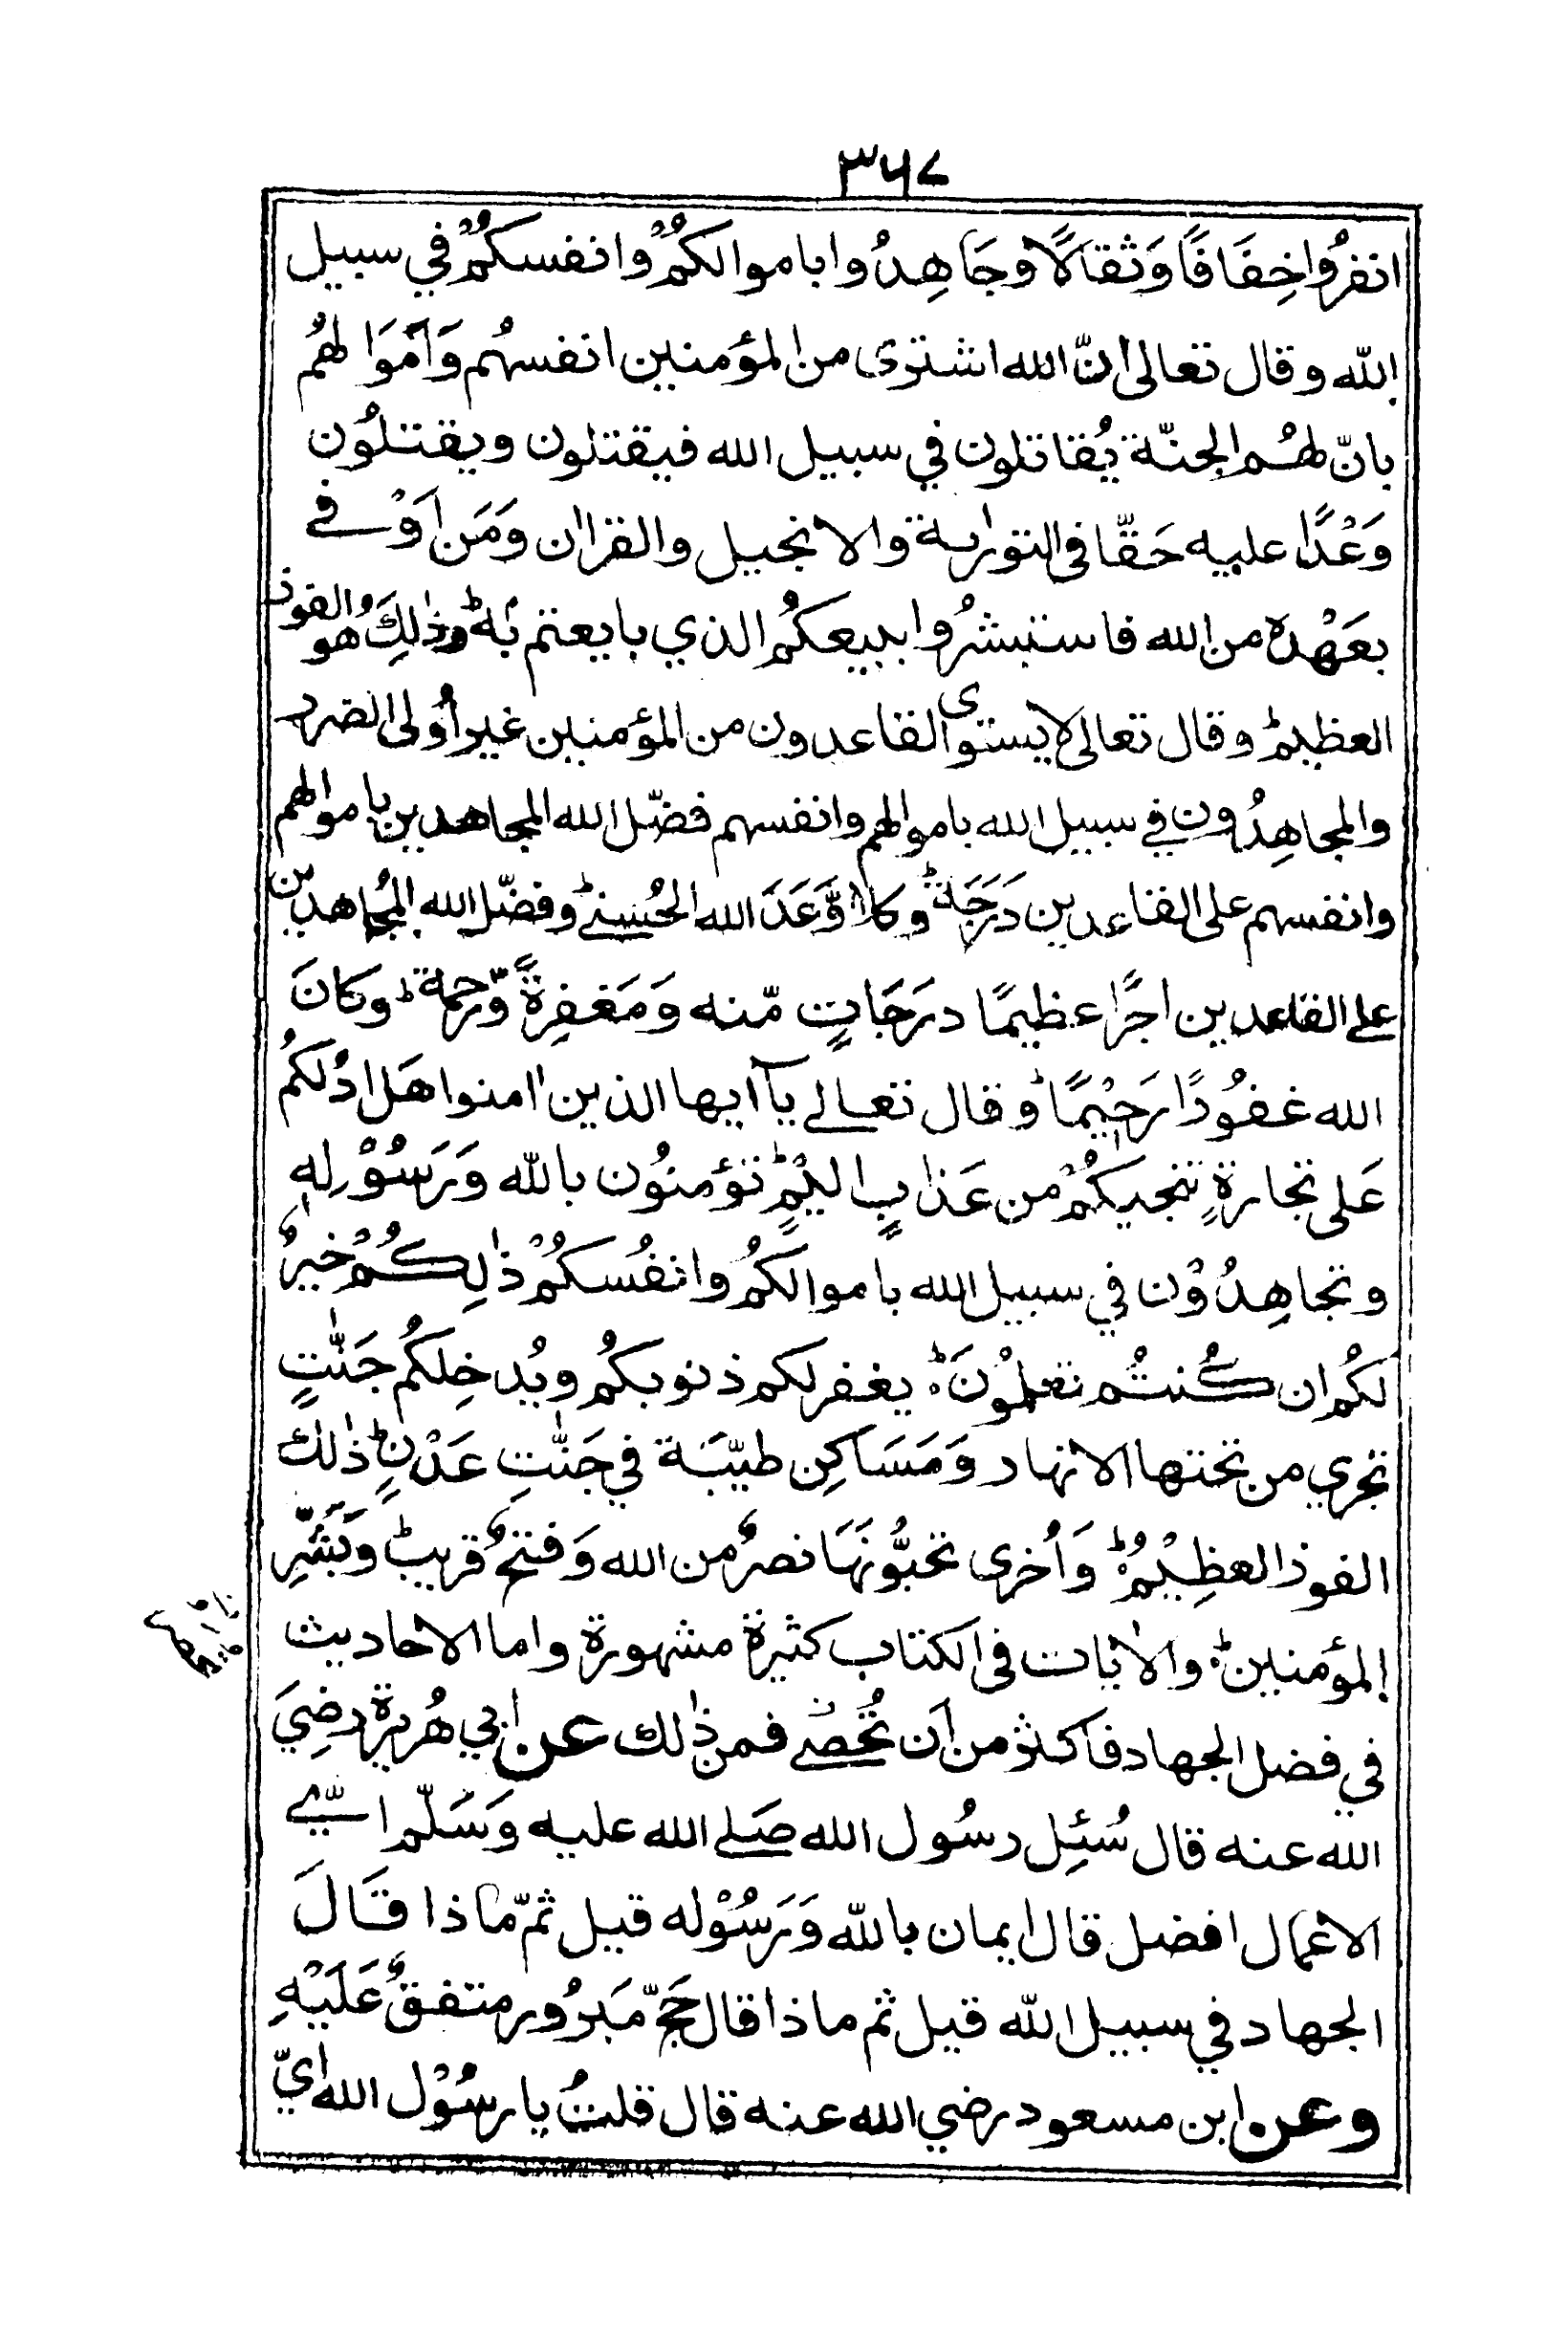 ٣٦٧
انفرُوا خِفَافًا وَثقالًا وجَاهِدُوا باموالكُمْ وانفسكُمْ في سبيل
الله وقال تعالى انّ الله اشترى من المؤمنين انفسهُم وَاَموَالهُم
بانّ لهُم الجنّة يُقاتلون في سبيل الله فيقتلون ويقتلُون
وَعْدًا عليه حَقّا فى التورٰىة والانجيل والقراٰن وَمَن اَوْفے
بعَهْده من الله فاستبشرُوا ببيعكُم الذي بايعتم بَهٖ وذٰلِكَ هُو الفوز
العظيمؕ وقال تعالى لا يستوى القاعدون من المؤمنين غير اُولى الضرر
والمجاهِدُون في سبيل الله باموالهم وانفسهم فضّل الله المجاهدين باموالهم
وانفسهم على القاعدين دَرَجَةًؕ وكلا وَّعَدَ الله الحُسنےؕ وفضّل الله المجُاهدين
علے القاعدين اجرًا عظيمًا درَجَاتٍ مّنه وَمَغفِرةً وّرحمةؕ وكانَ
الله غفُورًا رَحِيْمًاؕ وقال تعالے يآ ايها الذين اٰمنوا هَل ادُلكُم
عَلى تجارةٍ تنجيكُمْ من عَذابٍ اليْمٍؕ تؤمنوُن بالله وَرَسُوْلِهٖ
وتجاهِدُوْن في سبيل الله باموالكُم وانفُسكُمْ ذٰلِكُمْ خيرٌ
لكُم ان كُنتُم تعلموُنَؕ يغفرلكم ذنوبكُم ويُدخِلكُم جَنّٰتٍ
تجري من تحتها الانهار وَمَسَاكِن طيّبَة في جَنّٰتِ عَدْنٍؕ ذٰلك
الفوز العظِيْمُؕ وَاُخرى تحبُّونَهَا نصرٌ من الله وَفتحٌ قريبؕ وَبَشِّرِ
المؤمنينؕ والاٰيات فى الكتاب كثيرة مشهورة واما الاحاديث
في فضل الجهاد فاكثر من اَن تُحصٰے فمن ذٰلك عن ابي هُريرة رضِيَ
الله عنه قال سُئِل رسُول الله صَلے الله عليه وَسَلّم ايّے
الاعمال افضل قال ايمان بالله وَرَسُوْله قيل ثمّ ماذا قَالَ
الجهاد في سبيل الله قيل ثم ماذا قال حَجّ مَبرُور متفقٌ عَلَيْهِ
وعن ابن مسعود رضي الله عنه قال قلتُ يا رسُوْل الله ايّ